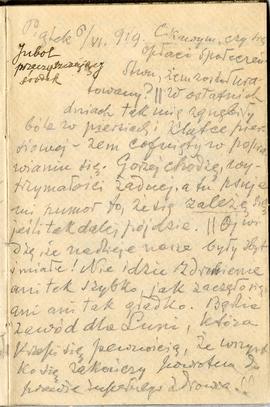 Piątek 6/VI. 919. Ciekawym, czy się
opłaci społeczeń
Jubol
przeczyszczający
środek
stwu, żem został ura
towany? || W ostatnich
dniach tak mię zgnębiły
bóle w piersiach i klatce pier
siowej - żem cofnięty w popra
wianiu się. Gorzej chodzę, wy
trzymałości żadnej, a tu psuje
mi humor to, że się zależę się
jeśli tak dalej pójdzie. || Oj wi
dzę, że nadzieje nasze były zbyt
śmiałe! Nie idzie zdrowienie
ani tak szybko, jak zaczęło się
ani ani tak gładko. Będzie
zawód dla Luni, która
krzepi się pewnością, że wszyst
ko się zakończy powrotem do
prawie zupełnego zdrowia!!